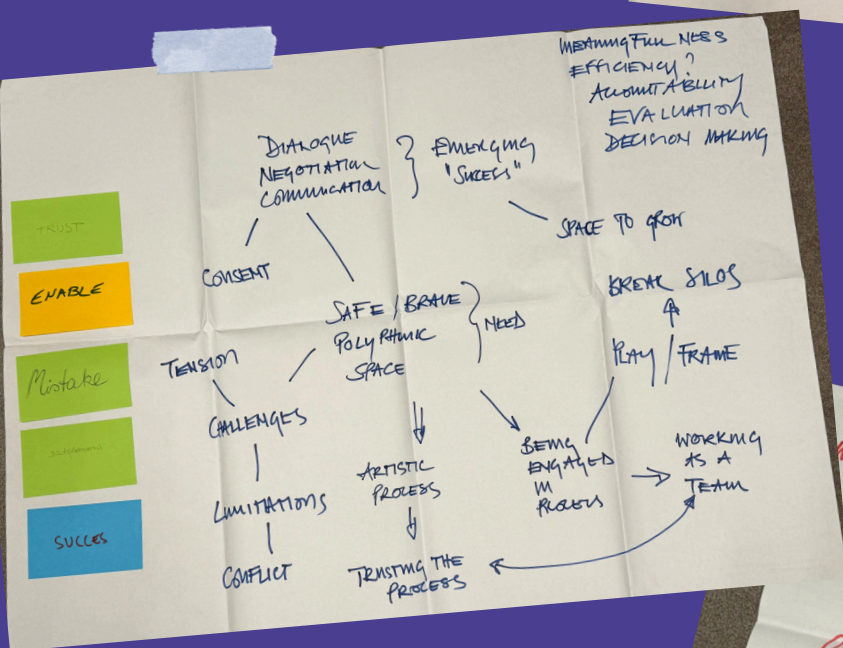 MEANINGFULLNESS
EFFICIENCY?
ACCOUNTABILITY
EVALUATION
DECISION MAKING
DIALOGUE
NEGOTIATION
COMMUNICATION
EMERGING
"SUCCESS"
SPACE TO GROW
CONSENT
SAFE / BRAVE
POLYPHONIC
SPACE
NEED
BREAK SILOS
PLAY / FRAME
TENSION
CHALLENGES
LIMITATIONS
CONFLICT
ARTISTIC
PROCESS
TRUSTING THE
PROCESS
BEING
ENGAGED
IN
PROCESS
WORKING
AS A
TEAM
TRUST
ENABLE
Mistake
SUCCES